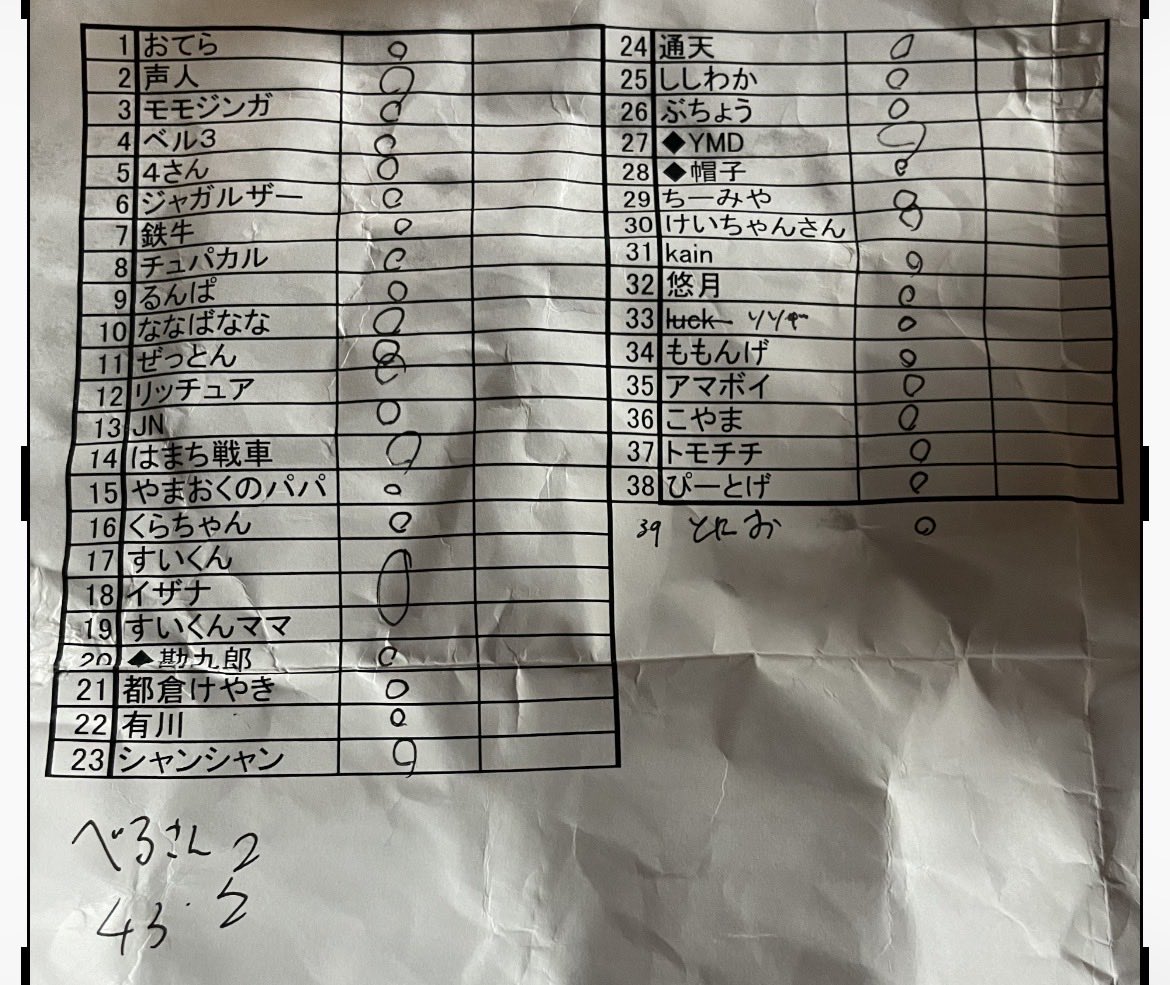 1 おてら ○
2 声人 ○
3 モモジンガ ○
4 ベル3 ○
5 4さん ○
6 ジャガルザー ○
7 鉄牛 ○
8 チュパカル ○
9 るんぱ ○
10 ななばなな ○
11 ぜっとん ○
12 リッチュア ○
13 JN ○
14 はまち戦車 ○
15 やまおくのパパ ○
16 くらちゃん ○
17 すいくん
18 イザナ ○
19 すいくんママ
20 ◆勘九郎 ○
21 都倉けやき ○
22 有川 ○
23 シャンシャン ○
べるさん 2
43 2
24 通天 ○
25 ししわか ○
26 ぶちょう ○
27 ◆YMD ○
28 ◆帽子 ○
29 ちーみや ○
30 けいちゃんさん ○
31 kain ○
32 悠月 ○
33 luck ○
34 ももんげ ○
35 アマボイ ○
36 こやま ○
37 トモチチ ○
38 ぴーとげ ○
39 とれお ○